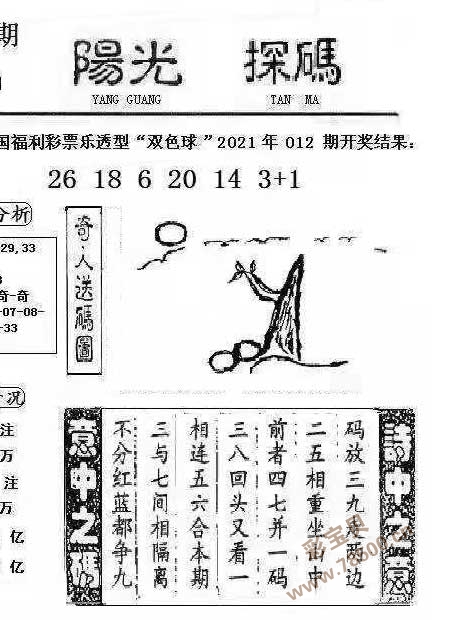 期
陽光 探碼
YANG GUANG TAN MA
国福利彩票乐透型“双色球”2021年012期开奖结果：
26 18 6 20 14 3+1
分析
29,33
3
奇-奇
-07-08-
-33
奇人送碼圖
况
注
万
注
万
亿
亿
码放三九是两边
二五相重坐当中
前者四七并一码
三八回头又看一
相连五六合本期
三与七间相隔离
不分红蓝都争九
意中之碼
彩宝贝
www.78500.cn